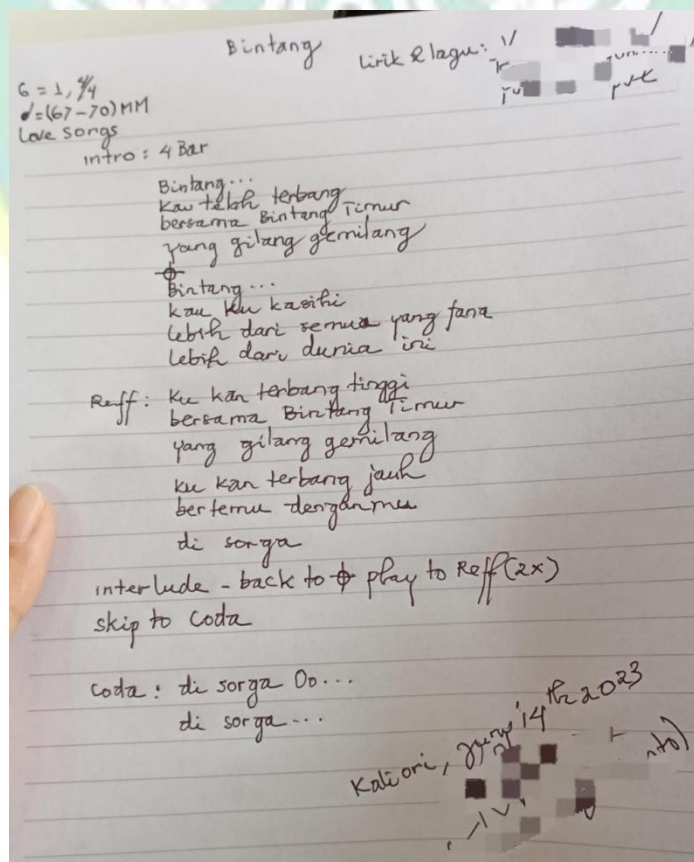 Bintang
Lirik & lagu:
G = 1, 4/4
♩=(67-70) MM
Love songs
intro : 4 Bar
Bintang...
Kau telah terbang
bersama Bintang Timur
yang gilang gemilang
𝄌
Bintang...
kau ku kasihi
lebih dari semua yang fana
lebih dari dunia ini
Reff : ku kan terbang tinggi
bersama Bintang Timur
yang gilang gemilang
ku kan terbang jauh
bertemu denganmu
di sorga
interlude - back to 𝄌 play to Reff (2x)
skip to Coda
Coda : di sorga Oo...
di sorga...
Kaliori, 14th 2023